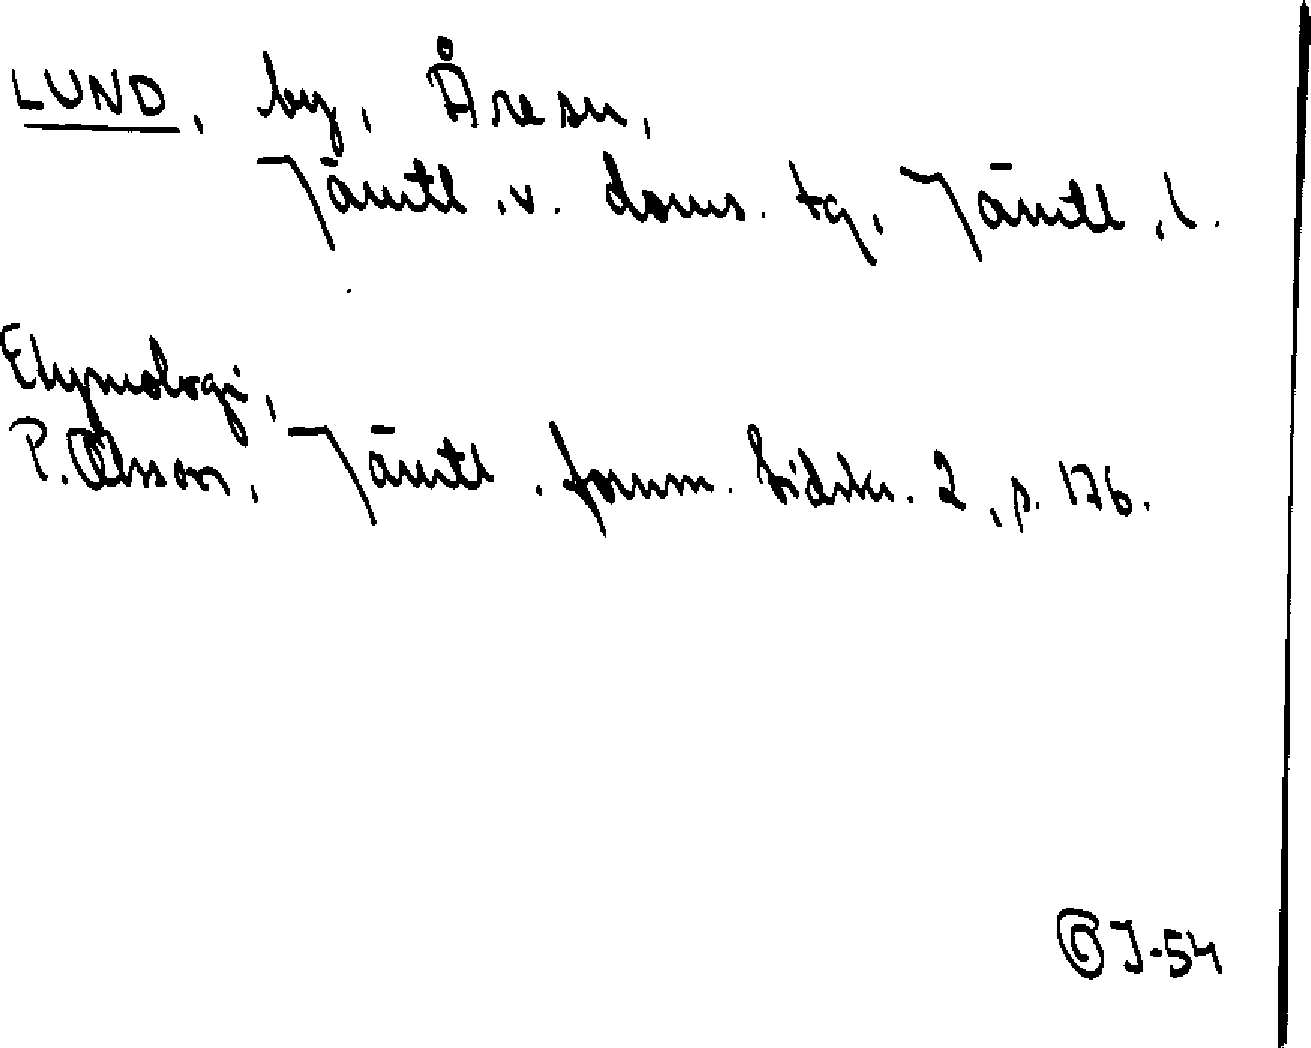 LUND, by, Åre sn,
Jämtl. v. doms. tg, Jämtl. l.
Etymologi,
P. Olsson, Jämtl. fornm. tidskr. 2, p. 176.
J-54